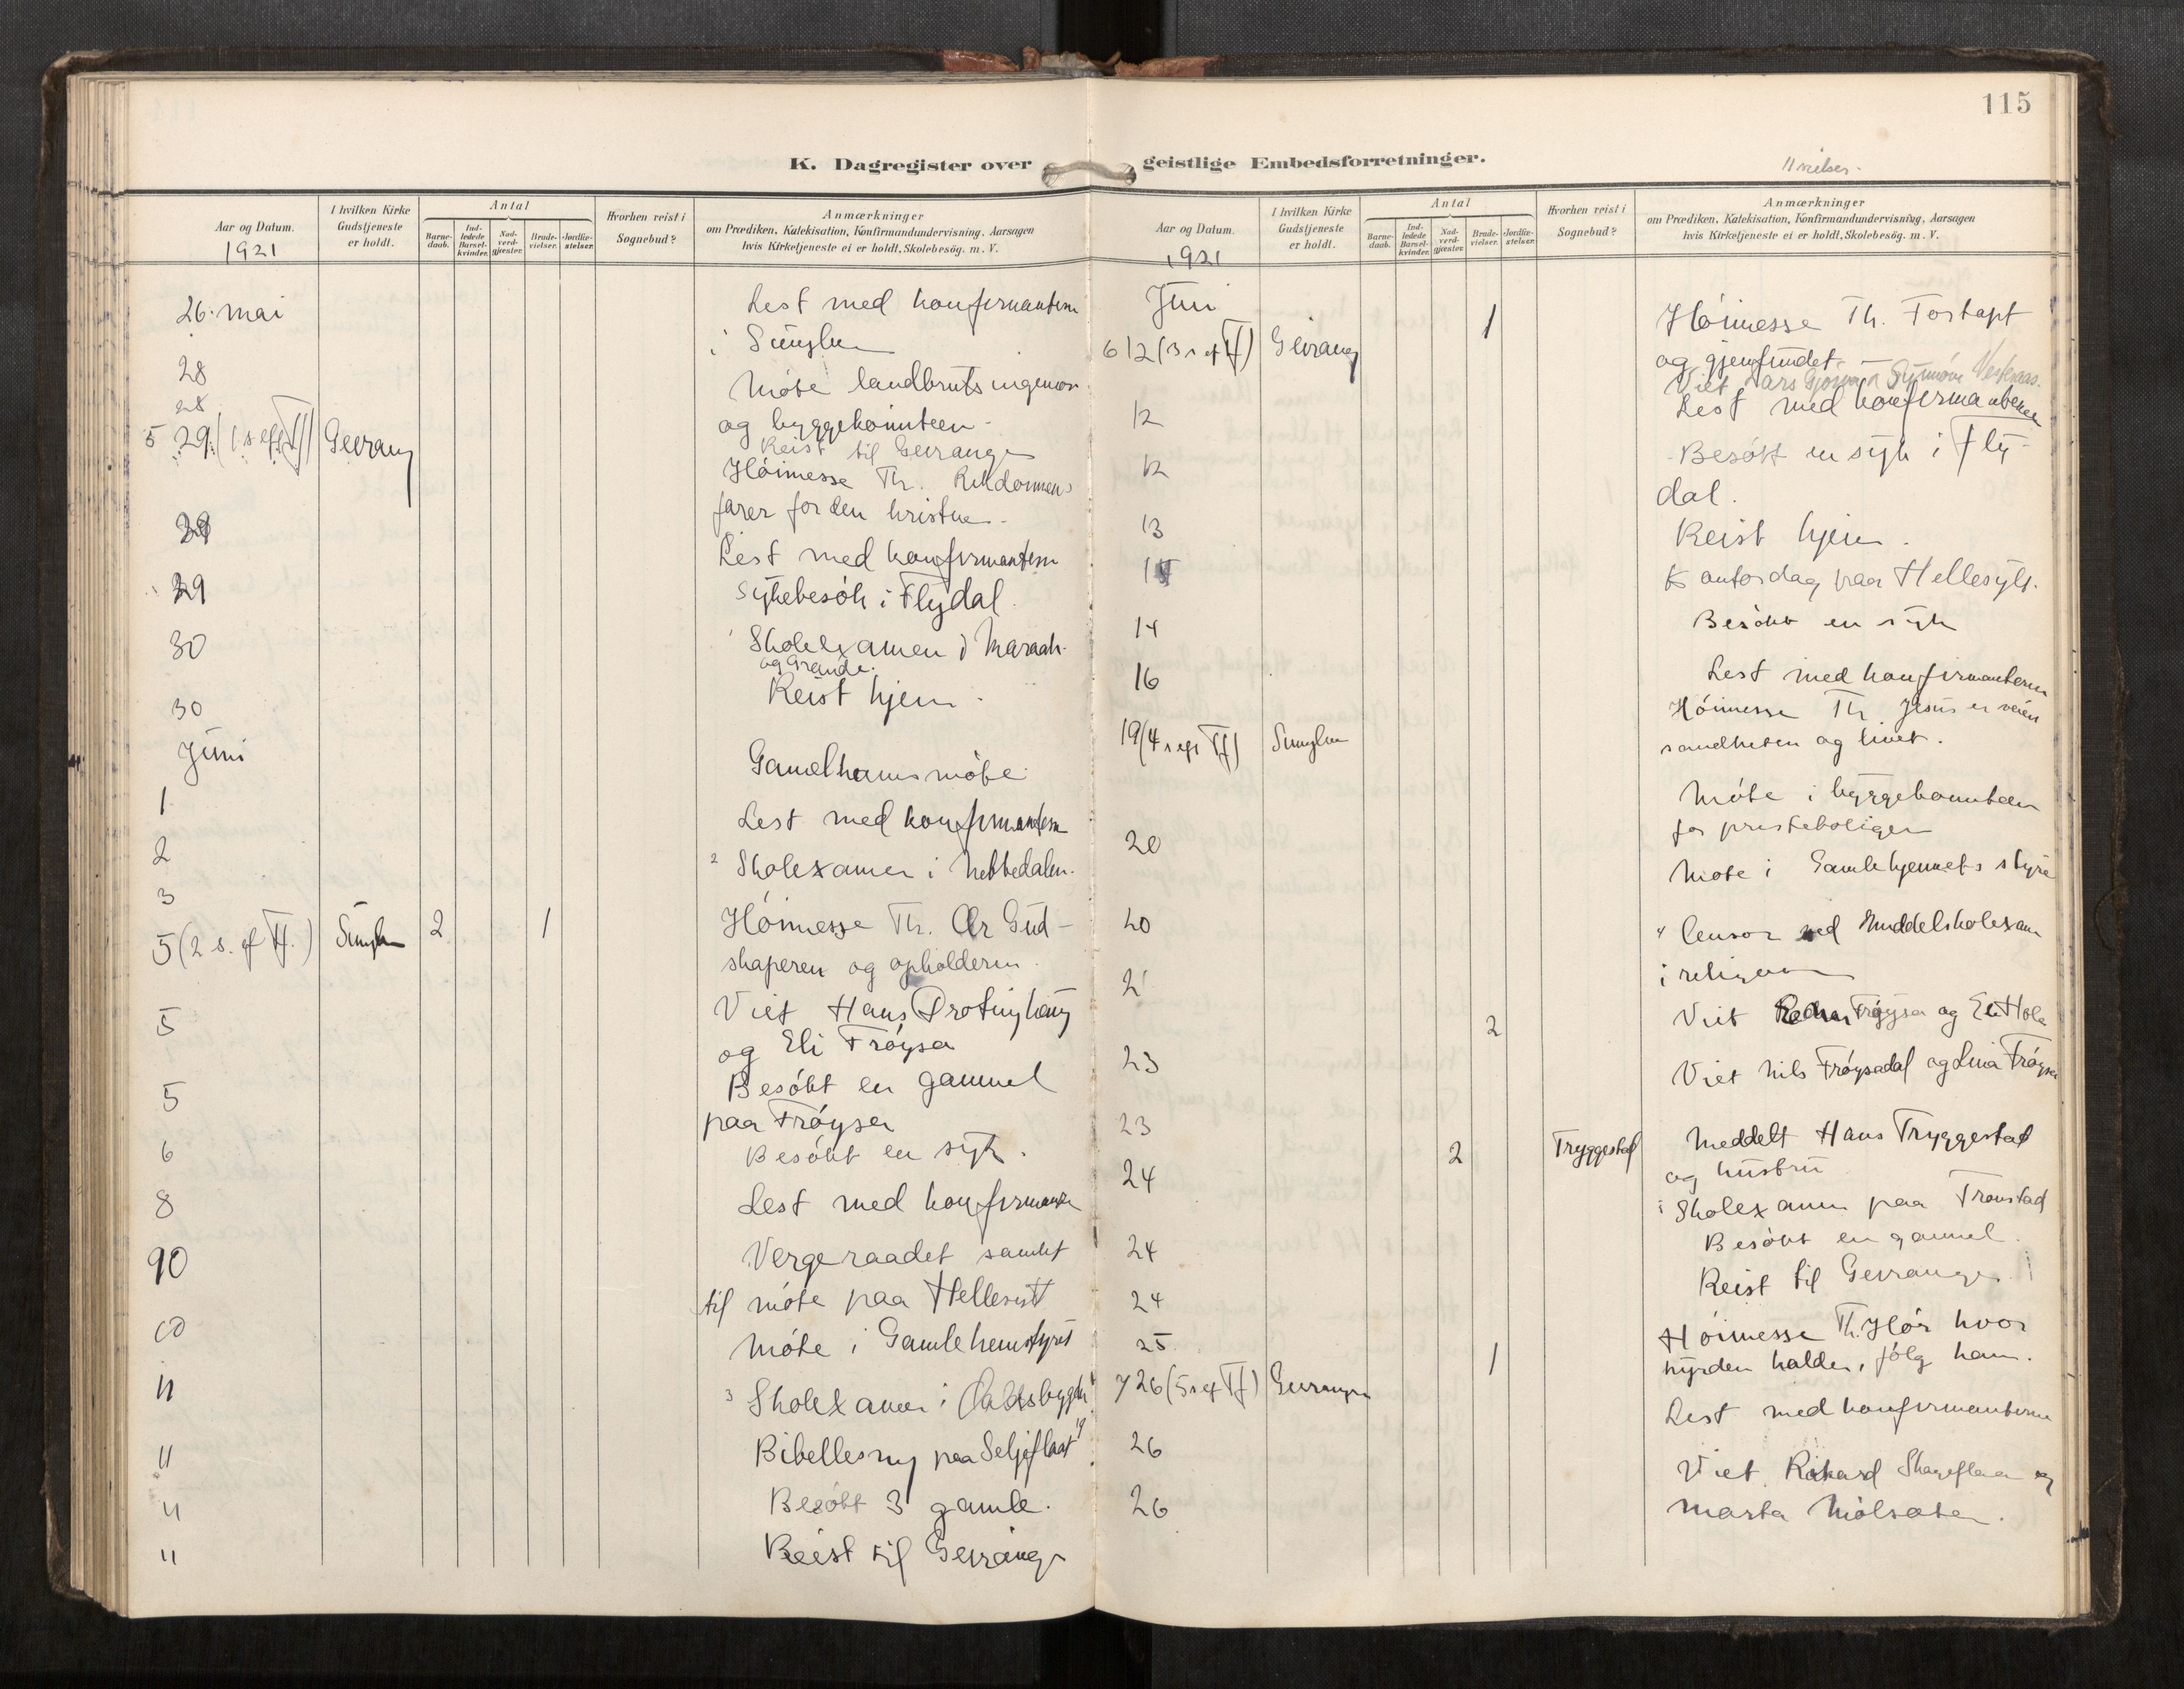 115
K. Dagregister over geistlige Embedsforretninger.
Aar og Datum.
1921
I hvilken Kirke Gudstjeneste er holdt.
Antal
Barnedaab.
Indledede Barselkvinder.
Nadverdgjæster.
Brudevielser.
Jordfæstelser.
Hvorhen reist i Sognebud?
Anmærkninger
om Prædiken, Katekisation, Konfirmandundervisning, Aarsagen
hvis Kirketjeneste ei er holdt, Skolebesøg. m. V.
26. mai Lest med konfirmantern
i Sunylven
28 Møte landbruksingeniør
28 og byggekomiteen
Reist til Geiranger
5 29. (1 s. eft Tf) Geirang Høimesse Th. Rikdommens
farer for den kristne
29 Lest med konfirmantern
29 Sykebesøk i Flydal.
30 Skolexamen i Maraak
og Grande.
30 Reist hjem
Juni
1 Gamelhemsmøte
2 Lest med konfirmantern
3 2 Skolexamen i Nebbedalen.
5 (2 s. ef Tf.) Sunylven 2 1 Høimesse Th. Er Gud
skaperen og opholderen
5 Viet Hans
og Eli Frøysa
5 Besøkt en gammel
paa Frøysa
6 Besøkt en syk.
8 Lest med konfirmante
Vergeraadet samlet
til møte paa Hellesylt
10 Møte i Gamlehemstyret
11 3 Skolexamen i
11 Bibellesning paa Seljeflaat
11 Besøkt 3 gamle.
11 Reist til Geiranger
Aar og Datum.
1921
I hvilken Kirke Gudstjeneste er holdt.
Antal
Barnedaab.
Indledede Barselkvinder.
Nadverdgjæster.
Brudevielser.
Jordfæstelser.
Hvorhen reist i Sognebud?
Anmærkninger
om Prædiken, Katekisation, Konfirmandundervisning, Aarsagen
hvis Kirketjeneste ei er holdt, Skolebesøg. m. V.
Juni
6 12 (3 s ef Tf) Geirang 1 Høimesse Th. Fortapt
og gjenfundet
Viet Lars
12 Lest med konfirmantene
12 Besøkt en syk i Fly-
dal.
13 Reist hjem.
Kontordag paa Hellesylt.
14 Besøkt en syk
16 Lest med konfirmanterne
19 (4 s eft Tf) Sunylven Høimesse Th. Jesus er veien
sandheten og livet.
20 Møte i byggekomiteen
for presteboligen
20 Møte i Gamlehjemmets styre
21 4 Censor ved Middelskolexam
i religion
2 Viet Frøysa og Eli Hole
23 Viet Nils Frøysadal og Lina Frøysa
23
24 2 Tryggestad Meddelt Hans Tryggestad
og hustru
Skolexamen paa Tronstad
24 Besøkt en gammel.
24 Reist til Geiranger
25
7 26 (5 s ef Tf) Geiranger 1 Høimesse Th. Hør hvor
hyrden kalder, følg ham.
26 Lest med konfirmanterne
26 Viet Rikard Skageflaa og
Marta Mølsæter.